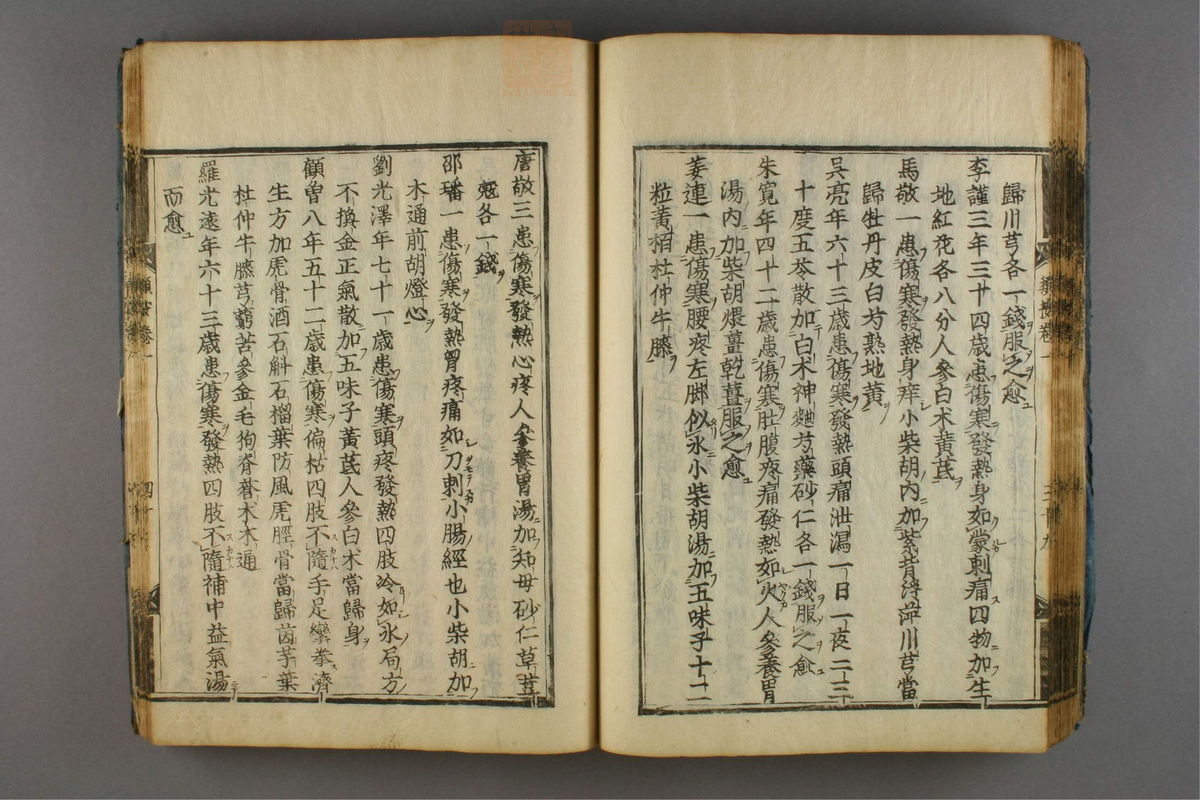 歸川芎各一錢服之愈
李謹三年三十四歳患傷寒發熱身如蒙刺痛四物加生
地紅花各八分人參白朮黃芪
馬敬一患傷寒發熱身痒小柴胡内加紫背浮萍川芎當
歸牡丹皮白芍熟地黃
吳亮年六十三歳患傷寒發熱頭痛泄瀉一日一夜二三
十度五苓散加白朮神麯芍藥砂仁各一錢服之愈
朱寬年四十二歳患傷寒肚腹疼痛發熱如火人參養胃
湯内加柴胡煨薑乾薑服之愈
姜連一患傷寒腰疼左脚似氷小柴胡湯加五味子十二
粒黃栢杜仲牛膝
三十九
唐敬三患傷寒發熱心疼人參養胃湯加知母砂仁草荳
蔲各一錢
邵璠一患傷寒發熱胃疼痛如刀刺小腸經也小柴胡加
木通前胡燈心
劉光澤年七十一歳患傷寒頭疼發熱四肢冷如氷局方
不換金正氣散加五味子黃芪人參白朮當歸身
顧曾八年五十二歳患傷寒偏枯四肢不隨手足攣拳濟
生方加虎骨酒石斛石榴葉防風虎脛骨當歸茵芋葉
杜仲牛膝芎藭苦參金毛狗脊蒼朮木通
羅光遠年六十三歳患傷寒發熱四肢不隨補中益氣湯
而愈
卷一
四十